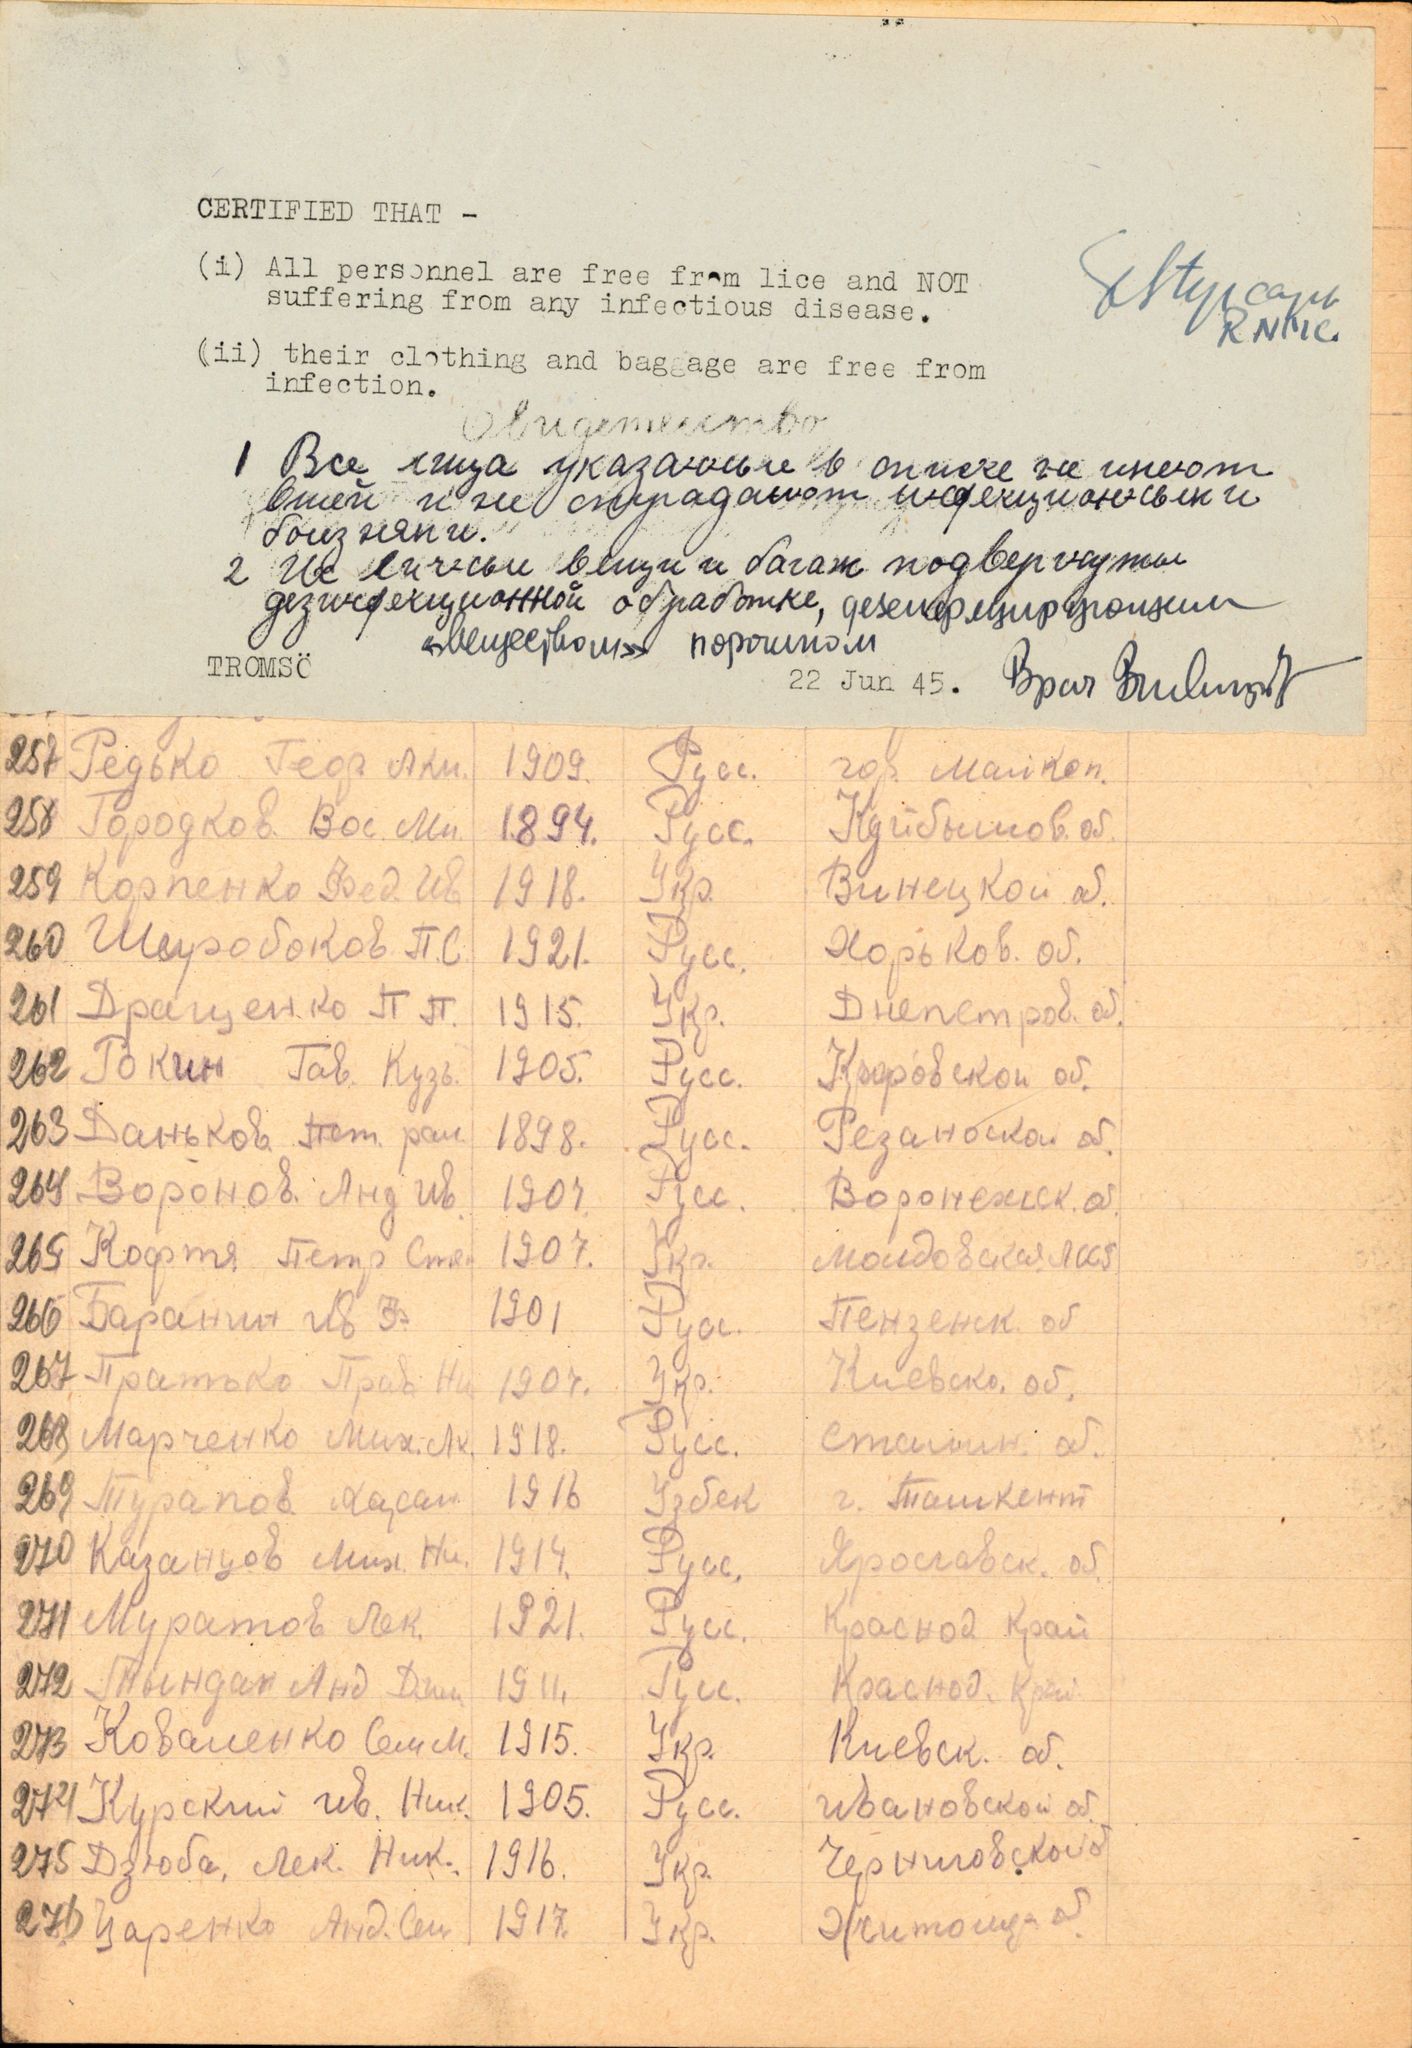 CERTIFIED THAT -
(i) All personnel are free from lice and NOT
suffering from any infectious disease.
R N M C.
(ii) their clothing and baggage are free from
infection.
Свидетельство
1 Все лица указанные в списке не имеют
вшей и не страдают инфекционными
болезнями.
2 Их личные вещи и багаж подвергнуты
дезинфекционной обработке, дезинфицирующим
"веществом" порошком
TROMSÖ 22 Jun 45. Врач
257 Редько Геор. Аки. 1909. Русс. гор. Майкоп.
258 Городков. Вас. Ми. 1894. Русс. Куйбышов. об.
259 Корпенко Фед. Ив 1918. Укр. Винецкой об.
260 П.С. 1921. Русс. Харьков. об.
261 Дращенко П П. 1915. Укр. Днепетров. об.
262 Гокин Гав. Кузь. 1905. Русс. Кировской об.
263 Даньков. Пет. 1898. Русс. Резанской об.
264 Воронов. Анд Ив. 1907. Русс. Воронежск. об.
265 Кофтя Петр 1907. Укр. Молдовская АССР
266 Баранин Ив Ф. 1901 Русс. Пензенск. об
267 Пратько 1907. Укр. Киевско. об.
268 Марченко Мих. 1918. Русс. Сталин. об.
269 Турапов Хасан 1916 Узбек г. Ташкент
270 Казанцов Мих. Ни. 1914. Русс. Ярославск. об.
271 Муратов Лек. 1921. Русс. Краснод Край
272 Тындак Анд 1911. Русс. Краснод. Край
273 Коваленко Сем М. 1915. Укр. Киевск. об.
274 Курский Ив. Ник. 1905. Русс. Ивановской об.
275 Дзюба, Лек. Ник. 1916. Укр. Черниговской об
276 Царенко Анд. Сем 1917. Укр. об.